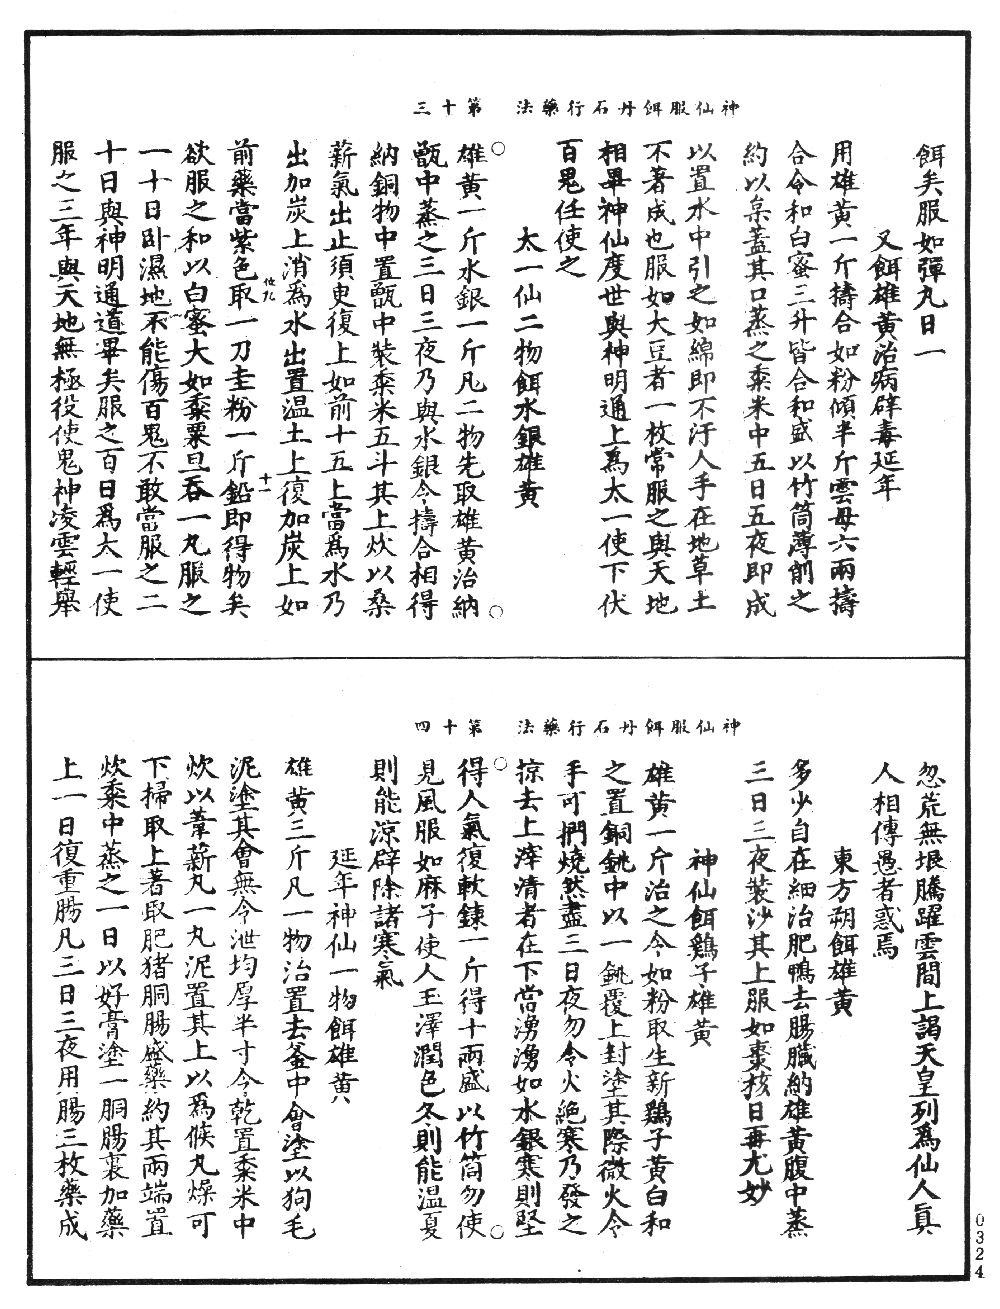 神仙服餌丹石行藥法　第十三
餌矣服如彈丸日一
又餌雄黃治病辟毒延年
用雄黃一斤擣合如粉傾半斤雲母六兩擣
合令和白蜜三升皆合和盛以竹筒薄削之
約以枲蓋其口蒸之黍米中五日五夜即成
以置水中引之如綿即不汙人手在地草土
不著成也服如大豆者一枚常服之與天地
相畢神仙度世與神明通上爲太一使下伏
百鬼任使之
太一仙二物餌水銀雄黃
雄黃一斤水銀一斤凡二物先取雄黃治納
甑中蒸之三日三夜乃與水銀令擣合相得
納銅物中置甑中裝黍米五斗其上炊以桑
薪氣出止須臾復上如前十五上當爲水乃
出加炭上消爲水出置温土上復加炭上如
前藥當紫色取一刀圭粉一斤鉛即得物矣
欲服之和以白蜜大如黍粟旦吞一丸服之
一十日卧濕地不能傷百鬼不敢當服之二
十日與神明通道畢矣服之百日爲太一使
服之三年與天地無極役使鬼神凌雲輕舉
神仙服餌丹石行藥法　第十四
忽荒無垠騰躍雲間上謁天皇列爲仙人真
人相傳愚者惑焉
東方朔餌雄黃
多少自在細治肥鴨去腸臟納雄黃腹中蒸
三日三夜裝沙其上服如棗核日再尤妙
神仙餌鷄子雄黃
雄黃一斤治之令如粉取生新鷄子黃白和
之置銅銚中以一銚覆上封塗其際微火令
手可捫燒然盡三日夜勿令火絶寒乃發之
掠去上滓清者在下當湧湧如水銀寒則堅
得人氣復軟鍊一斤得十兩盛以竹筒勿使
見風服如麻子使人玉澤潤色冬則能温夏
則能涼辟除諸寒氣
延年神仙一物餌雄黃
雄黃三斤凡一物治置去釜中會塗以狗毛
泥塗其會無令泄均厚半寸令乾置黍米中
炊以葦薪丸一丸泥置其上以爲候丸燥可
下掃取上著取肥猪胴腸盛藥約其兩端置
炊黍中蒸之一日以好膏塗一胴腸裏加藥
上一日復重腸凡三日三夜用腸三枚藥成
0324